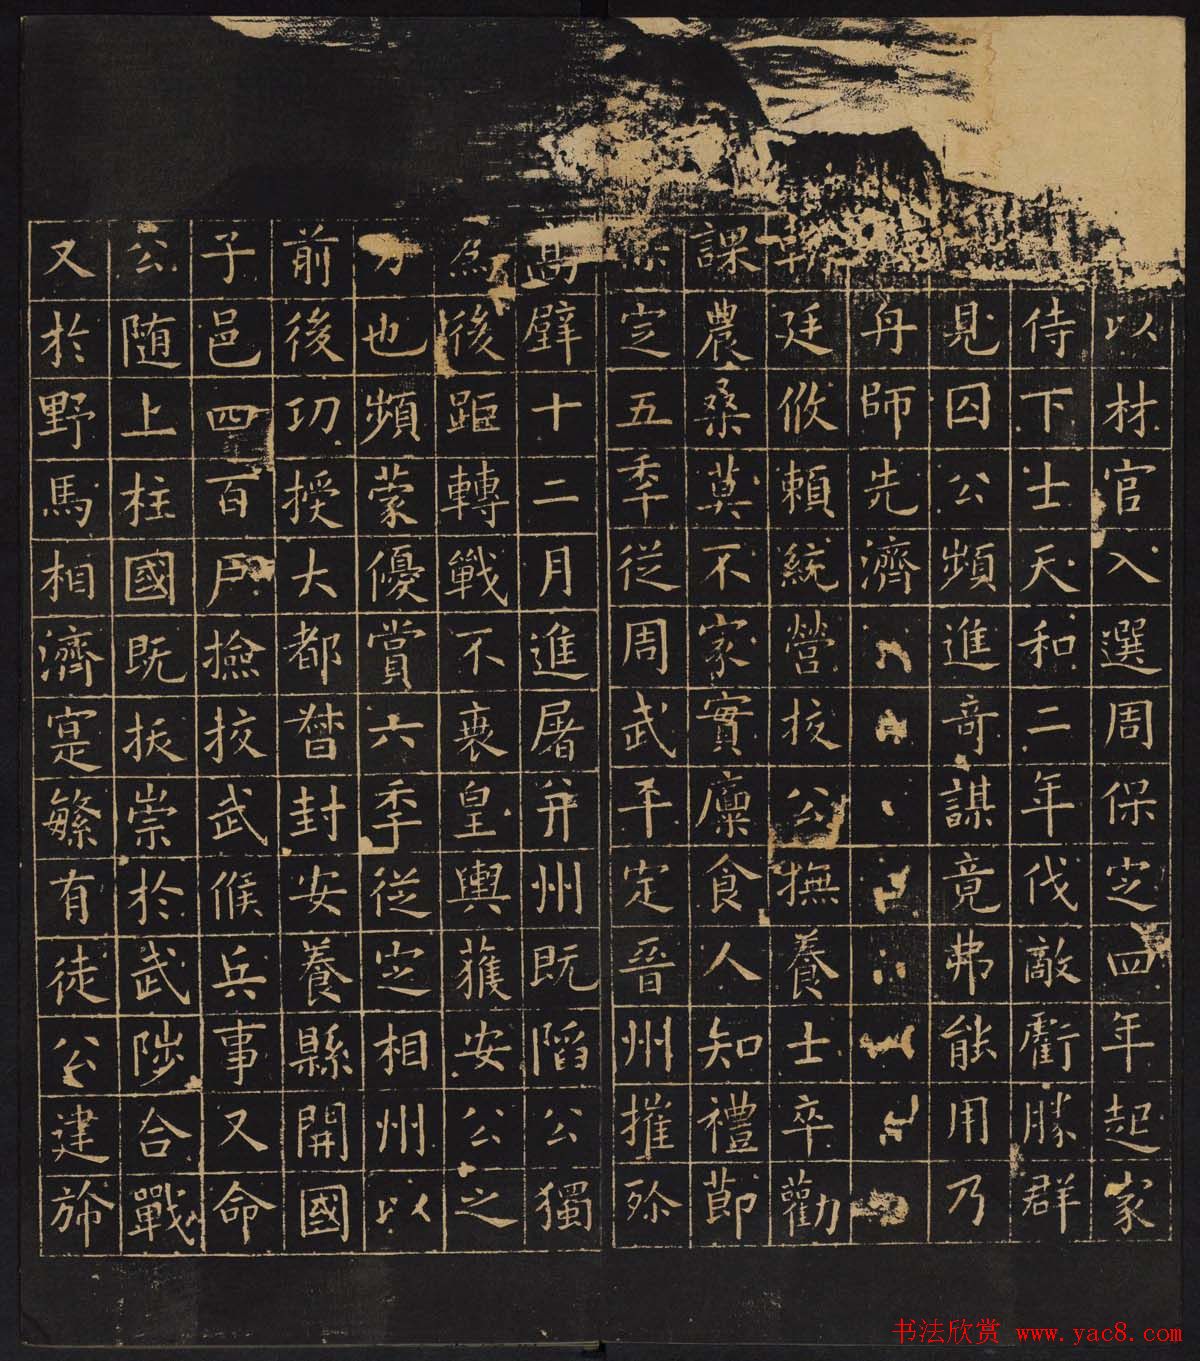 以材官入選周保定四年起家
侍下士天和二年伐敵虧勝群
見囚公頻進竒謀竟弗能用乃
舟師先濟
朝廷攸賴統營校公撫養士卒勸
課農桑莫不家實廩食人知禮節
定五秊從周武平定晉州摧殄
高壁十二月進屠并州既陷公獨
為後距轉戰不衰皇輿獲安公之
力也頻蒙優賞六秊從定相州以
前後功授大都督封安養縣開國
子邑四百戶撿挍武候兵事又命
公随上柱國既拔崇於武陟合戰
又於野馬相濟寔繁有徒公建旆
书法欣赏 www.yac8.com